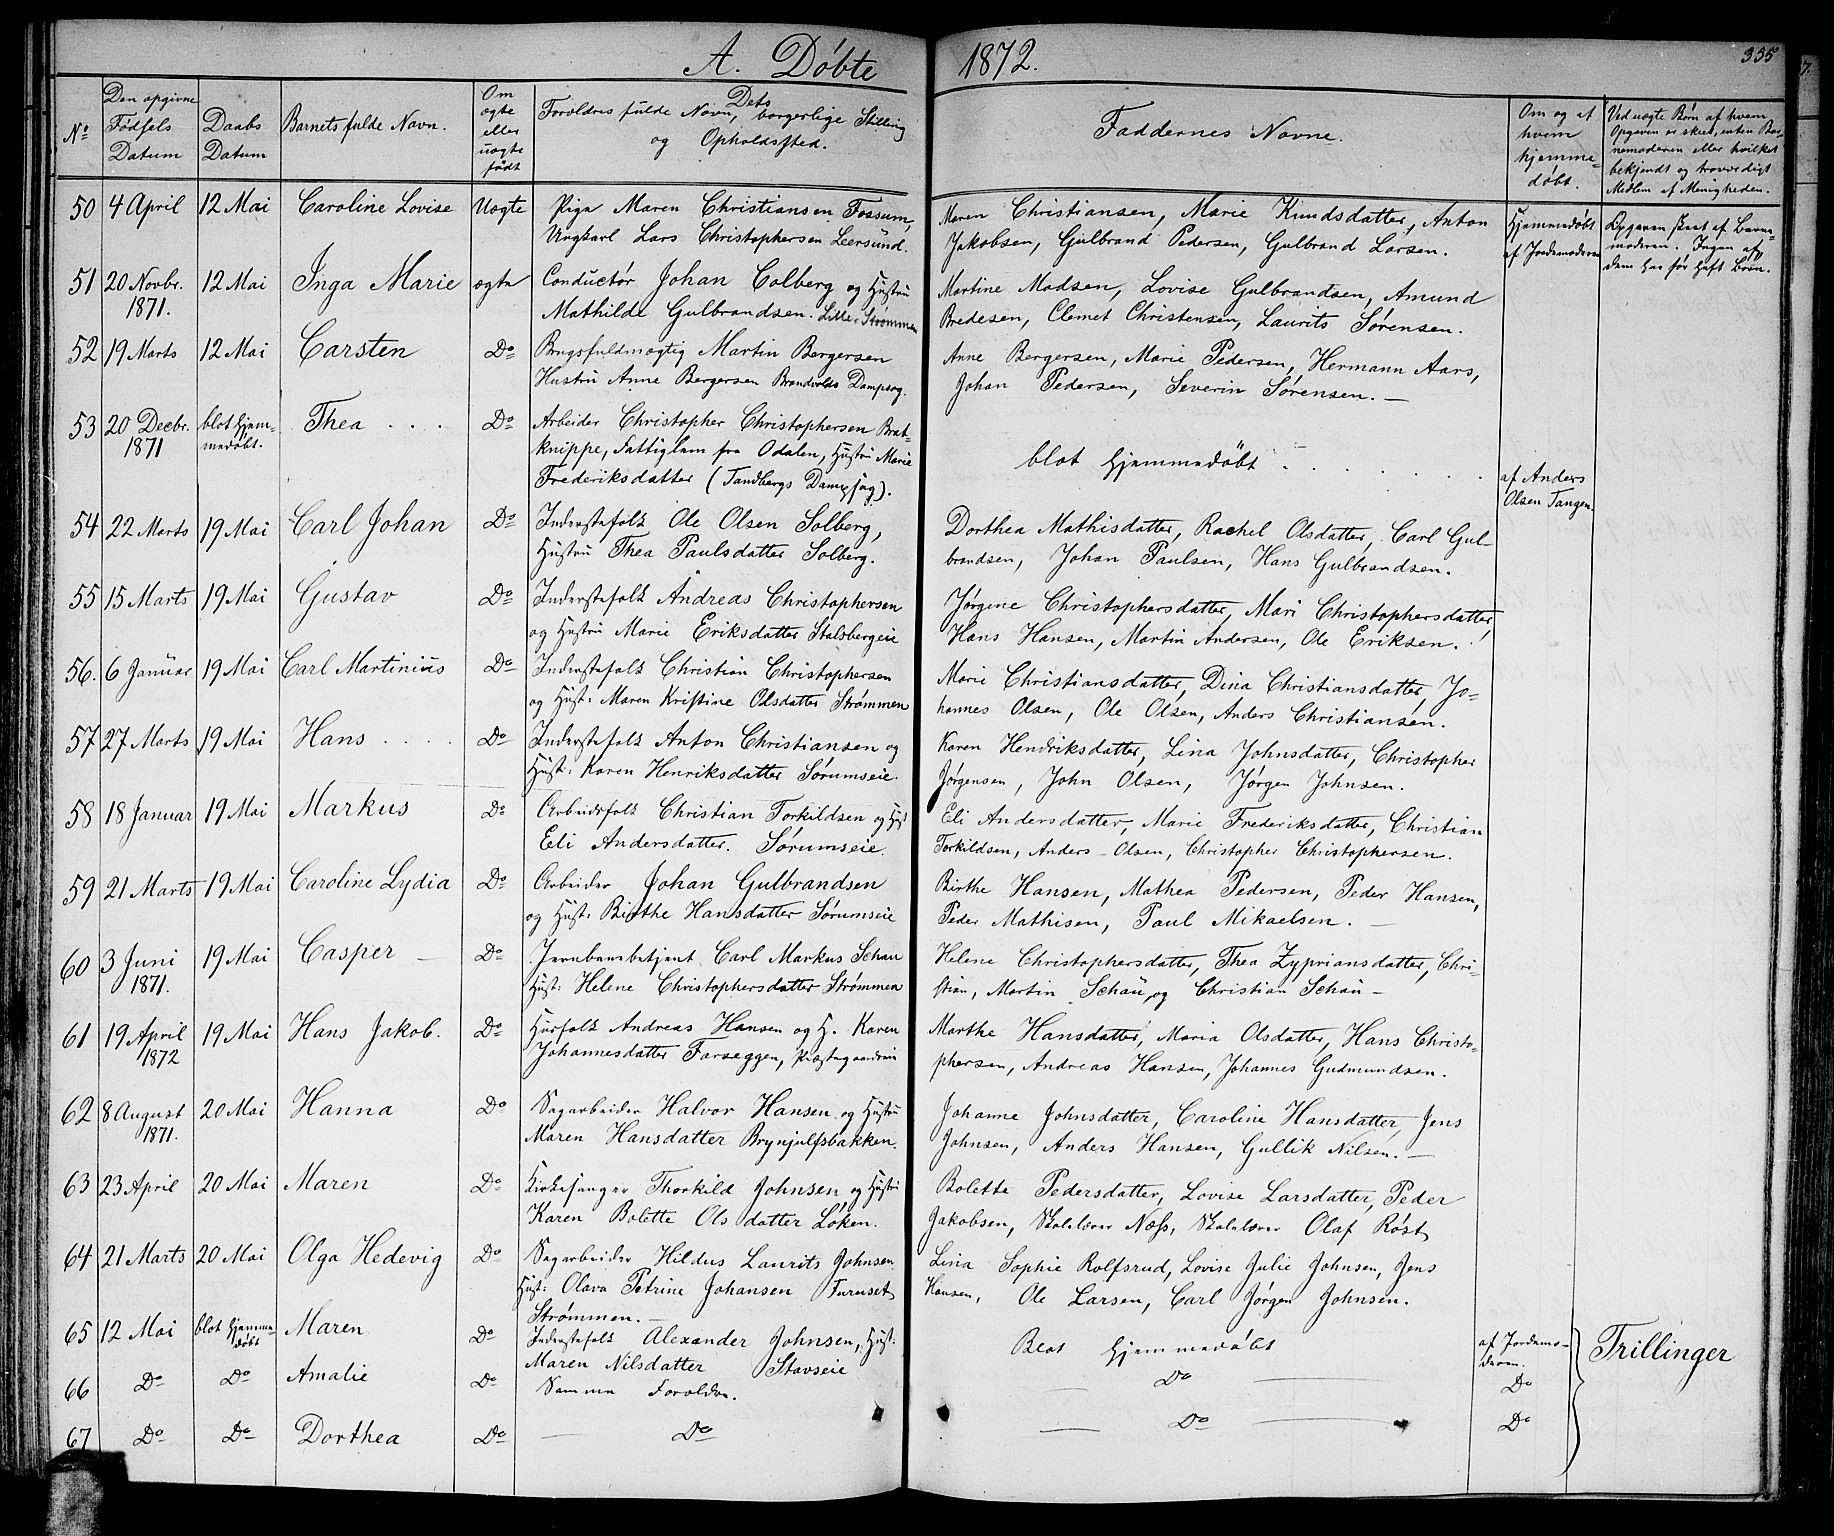 A. Döbte 1872.
355
No
Den opgivne
Födsels
Datum
Daabs
Datum
Barnets fulde Navn.
Om
ægte
eller
uægte
födt
Dets
Forældres fulde Navn, borgerlige Stilling
og Opholdssted.
Faddernes Navne.
Om og af
hvem
hjemme-
döbt.
Ved uægte Börn af hvem
Opgaven er skeet, enten Bar-
nemoderen eller hvilket
bekjendt og troværdigt
Medlem af Menigheden.
50 4 April 12 Mai Caroline Lovise Uægte Pige Maren Christiansen Fossum,
Ungkarl Lars Christophersen Leersund.
Maren Christiansen, Marie Knudsdatter, Anton
Jakobsen, Gulbrand Pedersen, Gulbrand Larsen.
Hjemmedöbt
af Jordemoderen
Opgaven skeet af Barne-
moderen. Ingen af
dem har för haft Börn.
51 20 Novbr. 1871. 12 Mai Inga Marie ægte Conductör Johan Colberg og Hustru
Mathilde Gulbrandsen. Lille-Strømmen
Martine Madsen, Lovise Gulbrandsen, Amund
Bredesen, Clemet Christensen, Laurits Sørensen.
52 19 Marts 12 Mai Carsten Do Brugsfuldmægtig Martin Bergersen
Hustru Anne Bergersen Brandvolds Dampsag.
Anne Bergersen, Marie Pedersen, Hermann Aars,
Johan Pedersen, Severin Sörensen. —
53 20 Decbr. 1871 blot hjem-
medöbt. Thea . . . Do Arbeider Christopher Christophersen Brat-
knippe, Fattiglem fra Odalen, Hustru Marie
Frederiksdatter (Tandbergs Dampsag).
blot hjemmedöbt
af Anders
Olsen Tangen.
54 22 Marts 19 Mai Carl Johan Do Inderstefolk Ole Olsen Solberg,
Hustru Thea Paulsdatter Solberg.
Dorthea Mathisdatter, Rachel Olsdatter, Carl Gul-
brandsen, Johan Paulsen, Hans Gulbrandsen.
55 15 Marts 19 Mai Gustav Do Inderstefolk Andreas Christophersen
og Hustru Marie Eriksdatter Stalsbergeie
Jörgene Christophersdatter, Mari Christophersdatter,
Hans Hansen, Martin Andersen, Ole Eriksen.
56. 6 Januar 19 Mai Carl Martinius Do Inderstefolk Christian Christophersen
og Hust: Maren Kristine Olsdatter Strømmen
Marie Christiansdatter, Dina Christiansdatter, Jo-
hannes Olsen, Ole Olsen, Anders Christiansen.
57 27 Marts 19 Mai Hans . . . . Do Inderstefolk Anton Christiansen og
Hust: Karen Henriksdatter Sørumseie.
Karen Hendriksdatter, Lina Johnsdatter, Christopher
Jörgensen, John Olsen, Jörgen Johnsen.
58 18 Januar 19 Mai Markus Do Arbeidsfolk Christian Torkildsen og Hust
Eli Andersdatter. Sörumseie.
Eli Andersdatter, Marie Frederiksdatter, Christian
Torkildsen, Anders Olsen, Christopher Christophersen.
59 21 Marts 19 Mai Caroline Lydia Do Arbeider Johan Gulbrandsen
og Hust: Birthe Hansdatter Sørumseie
Birthe Hansen, Mathea Pedersen, Peder Hansen,
Peder Mathisen, Paul Mikaelsen. —
60 3 Juni 1871. 19 Mai Casper — Do Jernbanebetjent Carl Markus Schau
Hust: Helene Christophersdatter Strømmen
Helene Christophersdatter, Thea Zypriansdatter, Chri-
stian, Martin Schau, og Christian Schau —
61 19 April 1872 19 Mai Hans Jakob. Do Huusfolk Andreas Hansen og H. Karen
Johannesdatter Farseggen, Præstegaardseie
Marthe Hansdatter, Maria Olsdatter, Hans Christo-
phersen, Andreas Hansen, Johannes Gudmundsen.
62 8 August 1871. 20 Mai Hanna Do Sagarbeider Halvor Hansen og Hustru
Maren Hansdatter Brynjulfsbakken.
Johanne Johnsdatter, Caroline Hansdatter, Jens
Johnsen, Anders Hansen, Gullik Nilsen. —
63 23 April 20 Mai Maren Do Kirkesanger Thorkild Johnsen og Hustru
Karen Bolette Olsdatter Löken.
Bolette Pedersdatter, Lovise Larsdatter, Peder
Jakobsen, Skolelærer Næss, Skolelærer Olaf Röst
64 21 Marts 20 Mai Olga Hedevig Do Sagarbeider Hildus Laurits Johnsen
Hust: Olava Petrine Johansen Furuset
Strømmen. —
Lina Sophie Rolfsrud, Lovise Julie Johnsen, Jens
Hansen, Ole Larsen, Carl Jörgen Johnsen.
65 12 Mai blot hjemme-
döbt Maren Do Inderstefolk Alexander Johnsen, Hust:
Maren Nilsdatter Stavseie
Blot hjemmedöbt
af Jordemo-
deren.
Trillinger
66 Do Do Amalie Do Samme Forældre.
Do Do
67 Do Do Dorthea Do — Do
Do Do